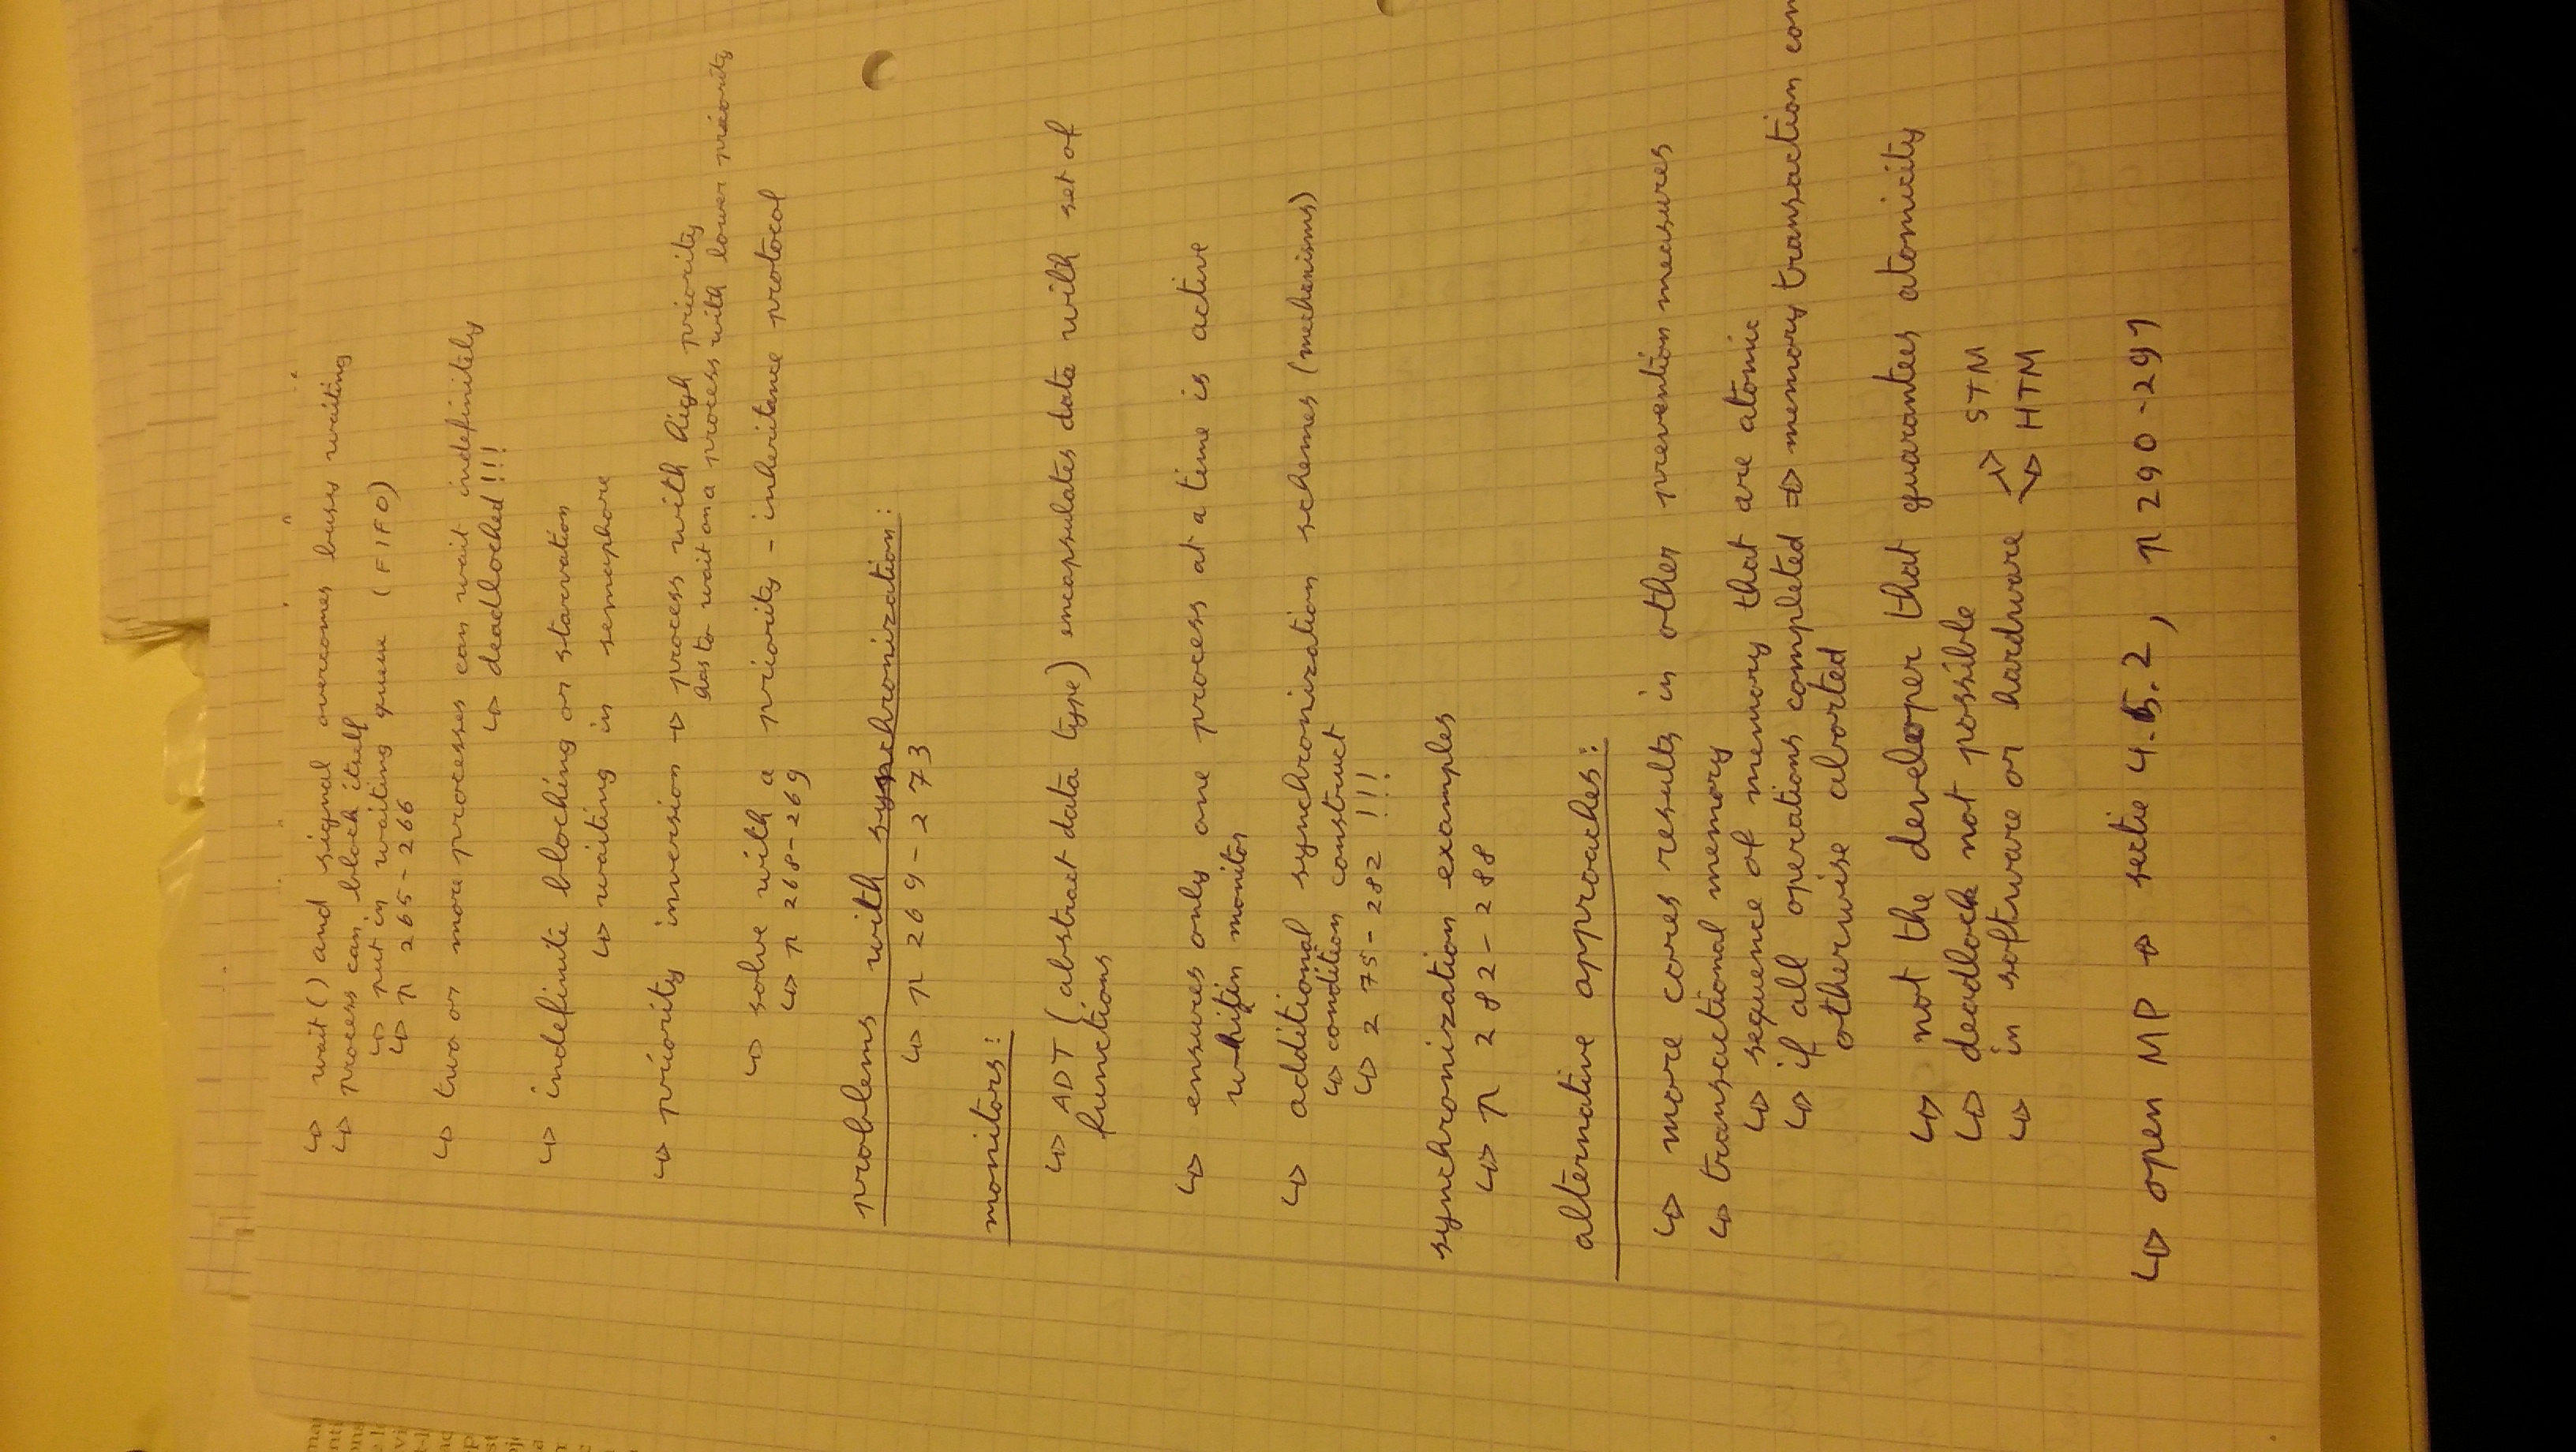 ↳ wait() and signal overcomes busy waiting
↳ process can block itself
↳ put in waiting queue (FIFO)
↳ p 265-266
↳ two or more processes can wait indefinitely
↳ deadlocked!!!
↳ indefinite blocking or starvation
↳ waiting in semaphore
↳ priority inversion → process with high priority
has to wait on a process with lower priority
↳ solve with a priority-inheritance protocol
↳ p 268-269
problems with synchronization:
↳ p 269-273
monitors:
↳ ADT (abstract data type) encapsulates data with set of
functions
↳ ensures only one process at a time is active
monitor
↳ additional synchronization schemes (mechanisms)
↳ condition construct
↳ 275-282 !!!
synchronization examples
↳ p 282-288
alternative approaches:
↳ more cores results in other prevention measures
↳ transactional memory
↳ sequence of memory that are atomic
↳ if all operations completed ⇒ memory transaction com
otherwise aborted
↳ not the developer that guarantees atomicity
↳ deadlock not possible
↳ in software or hardware → STM
→ HTM
↳ open MP → sectie 4.5.2, p 290-291